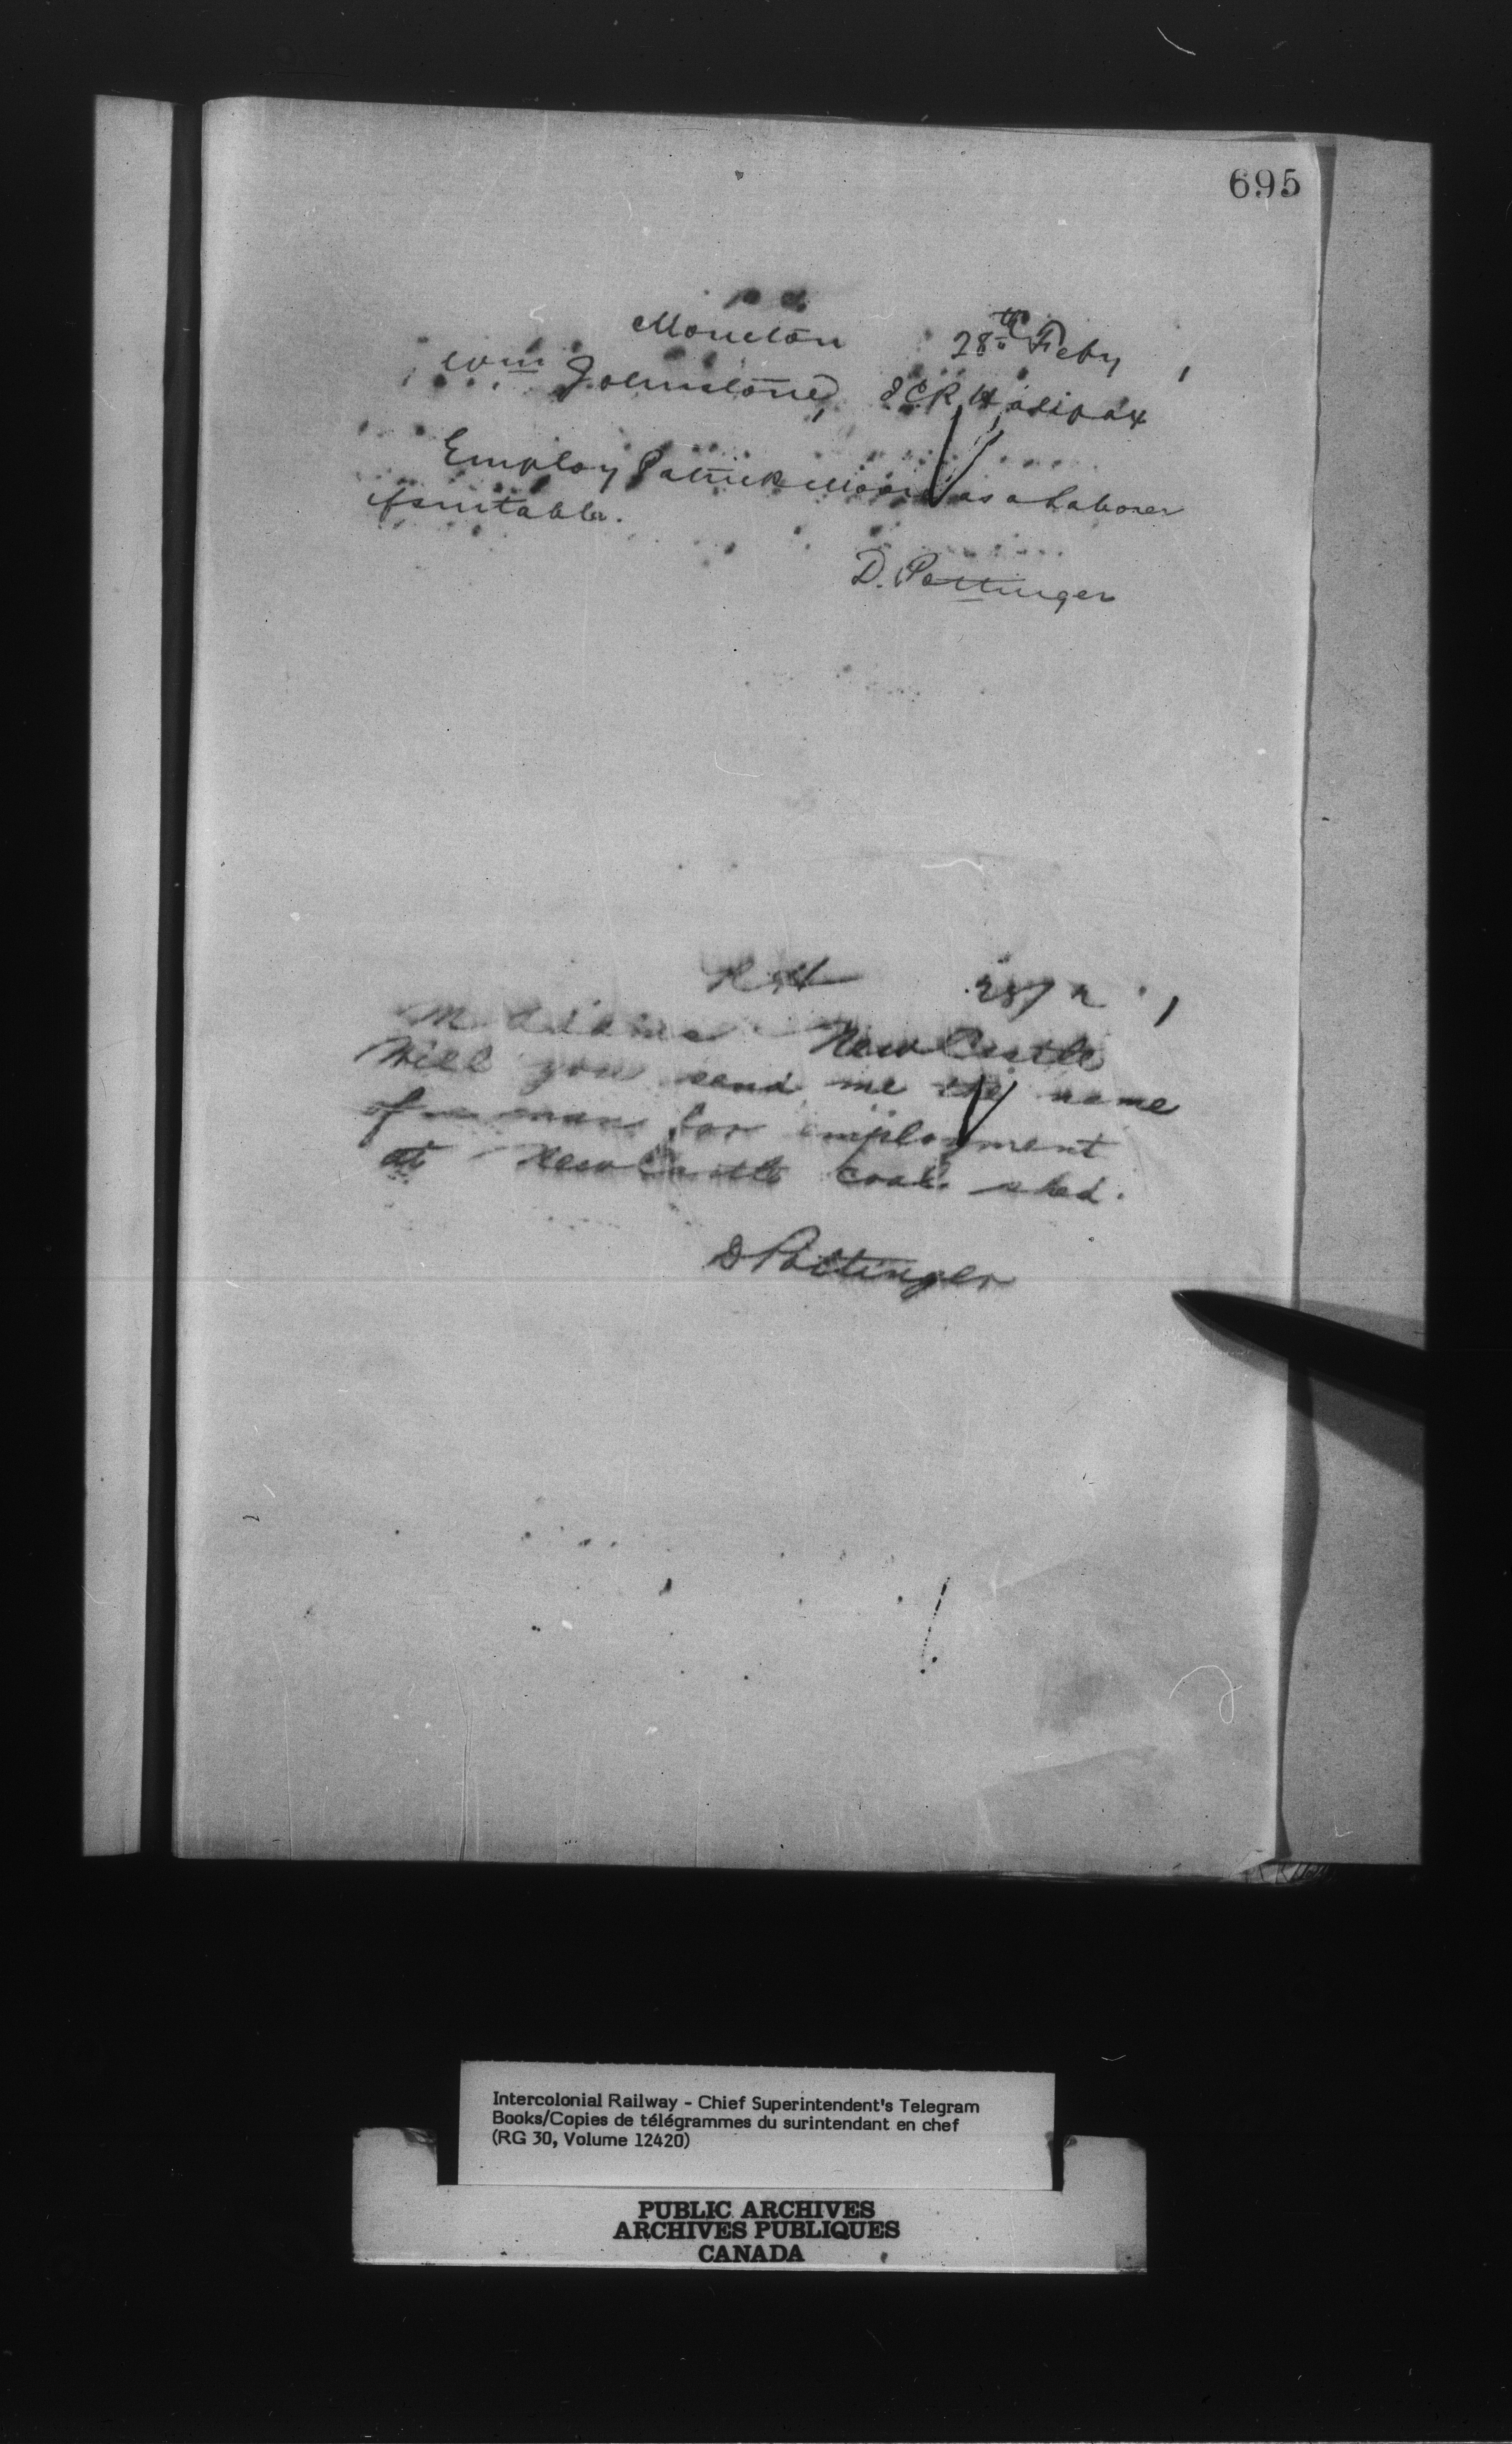 695
Moncton 28th Feby
Wm Johnstone, ICR Halifax
Employ Patrick Moore as a Laborer
if suitable.
D. Pottinger
28/2
M Adams NewCastle
Will you send me the name
of a man for employment
at NewCastle coal shed.
D Pottinger
Intercolonial Railway - Chief Superintendent's Telegram
Books/Copies de télégrammes du surintendant en chef
(RG 30, Volume 12420)
PUBLIC ARCHIVES
ARCHIVES PUBLIQUES
CANADA